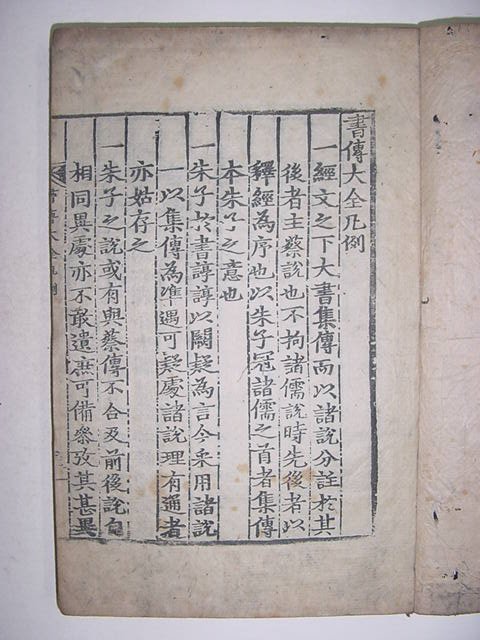 書傳大全凡例
一經文之下大書集傳而以諸說分註於其
後者主蔡說也不拘諸儒說時先後者以
釋經為序也以朱子冠諸儒之首者集傳
本朱子之意也
一朱子於書諄諄以闕疑為言今采用諸說
一以集傳為準遇可疑處諸說理有通者
亦姑存之
一朱子之說或有與蔡傳不合及前後說自
相同異處亦不敢遺庶可備參攷其甚異
書傳大全凡例